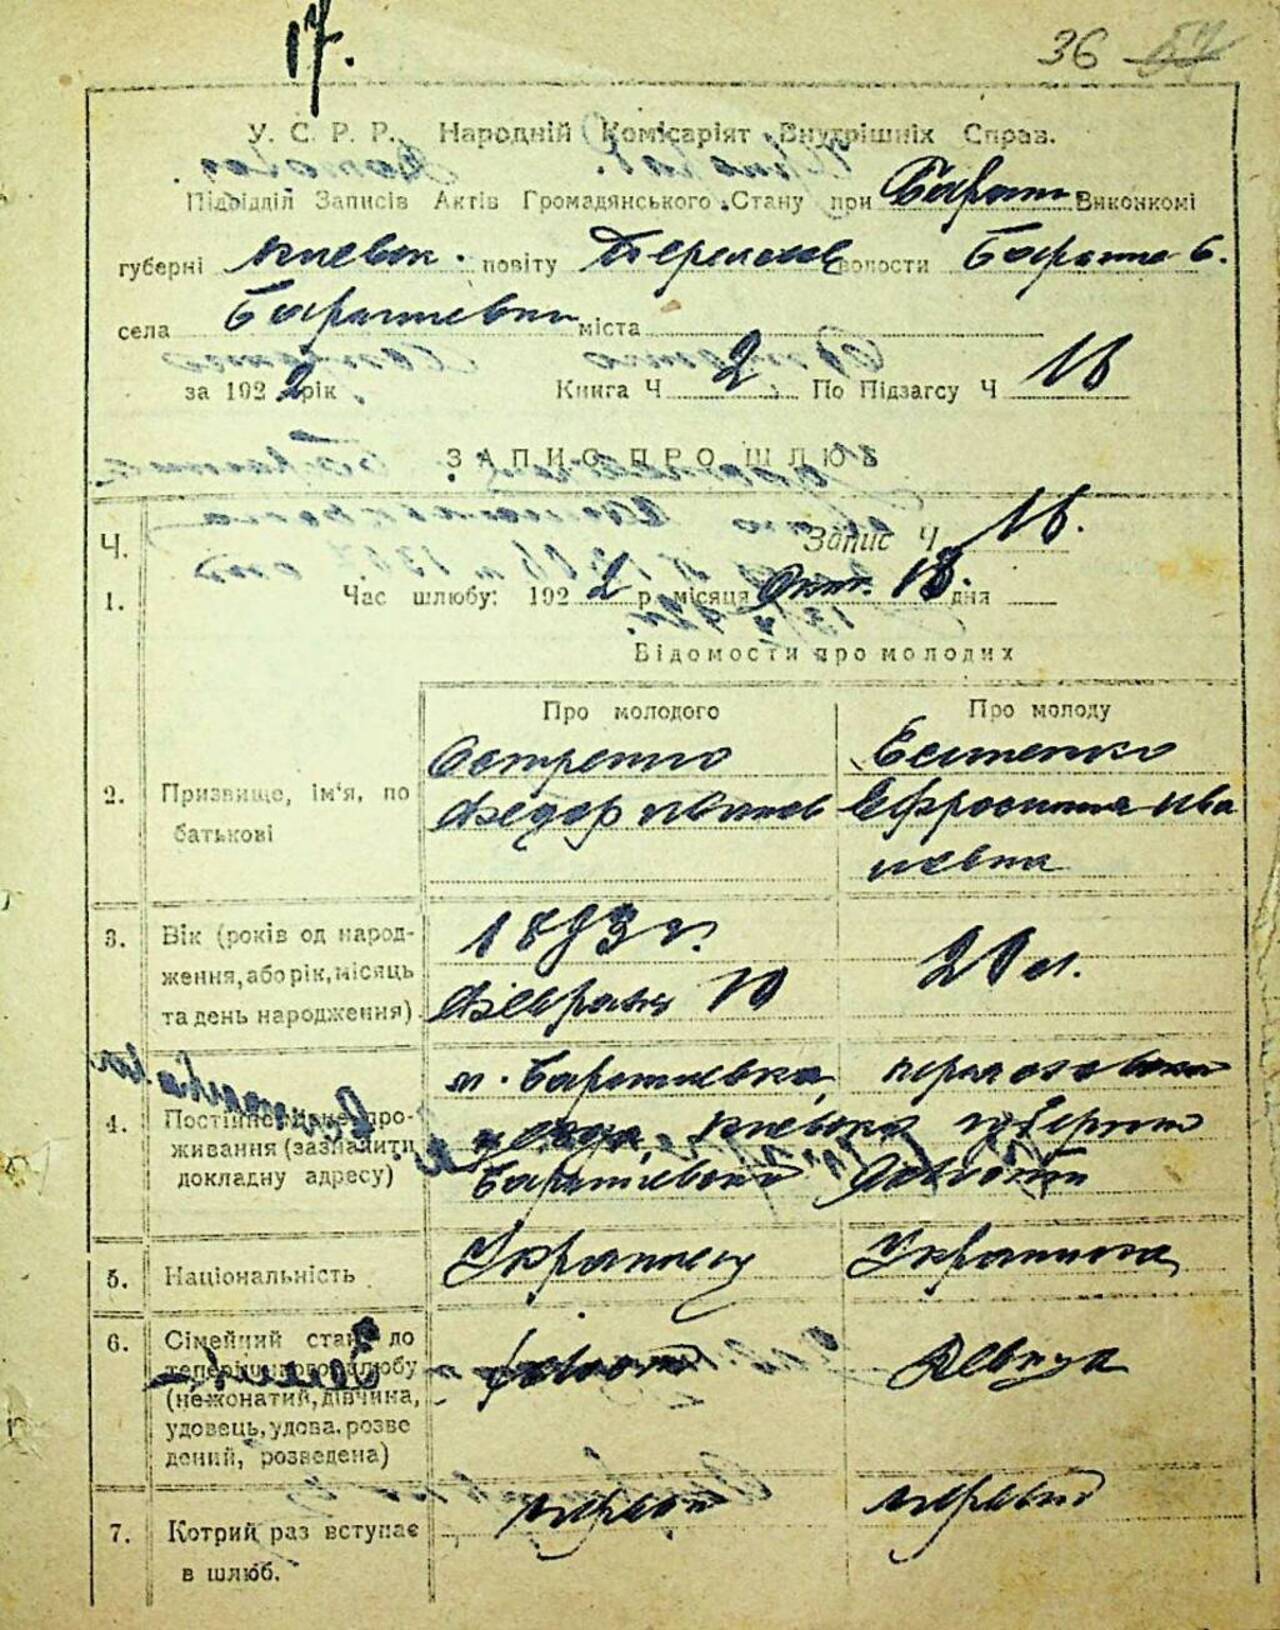 17.
36 57
У. С. Р. Р. Народній Комісаріят Внутрішніх Справ.
Підвідділ Записів Актів Громадянського Стану при Бариш. Виконкомі
губерні Киевск. повіту Переяслов волости Баришев.
села Баришевки міста
за 1922 рік Книга Ч 2 По Підзагсу Ч 16
ЗАПИС ПРО ШЛЮБ
Запис Ч 16.
Ч.
1. Час шлюбу: 1922 р. місяця Окт. 18. дня
Відомости про молодих
Про молодого Про молоду
2. Призвище, ім'я, по батькові
Федор Иванов Ефросиния Ива
новна
3. Вік (років од народ-
ження, або рік, місяць
та день народження).
1893 г. 21 л.
Февраля 10
4. Постійне місце про-
живання (зазначити
докладну адресу)
м. Баришевка, Переясловского
уезда, Киевской губернии
Баришевской волости
5. Національність Украинец Украинка
6. Сімейний стан до
теперішнього шлюбу
(нежонатий, дівчина,
удовець, удова, розве
дений, розведена)
холост Девица
7. Котрий раз вступає
в шлюб.
первый первый